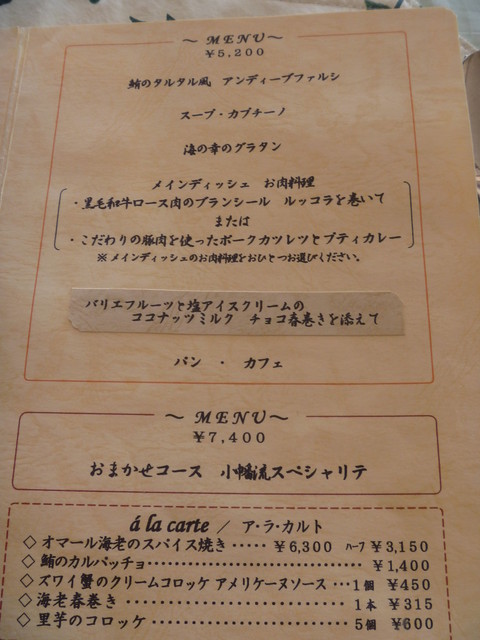 ～ MENU～
￥5,200
鮪のタルタル風 アンディーブファルシ
スープ・カプチーノ
海の幸のグラタン
メインディッシュ お肉料理
・黒毛和牛ロース肉のブランシール ルッコラを巻いて
または
・こだわりの豚肉を使ったポークカツレツとプティカレー
※メインディッシュのお肉料理をおひとつお選びください。
バリエフルーツと塩アイスクリームの
ココナッツミルク チョコ春巻きを添えて
パン ・ カフェ
～ MENU～
￥7,400
おまかせコース 小幡流スペシャリテ
á la carte ／ ア・ラ・カルト
◇オマール海老のスパイス焼き ‥‥‥ ￥6,300 ﾊｰﾌ ￥3,150
◇鮪のカルパッチョ ‥‥‥‥‥‥‥‥‥‥‥‥‥‥ ￥1,400
◇ズワイ蟹のクリームコロッケ アメリケーヌソース ‥‥1個 ￥450
◇海老春巻き ‥‥‥‥‥‥‥‥‥‥‥‥‥ 1本 ￥315
◇里芋のコロッケ ‥‥‥‥‥‥‥‥‥‥‥ 5個 ￥600